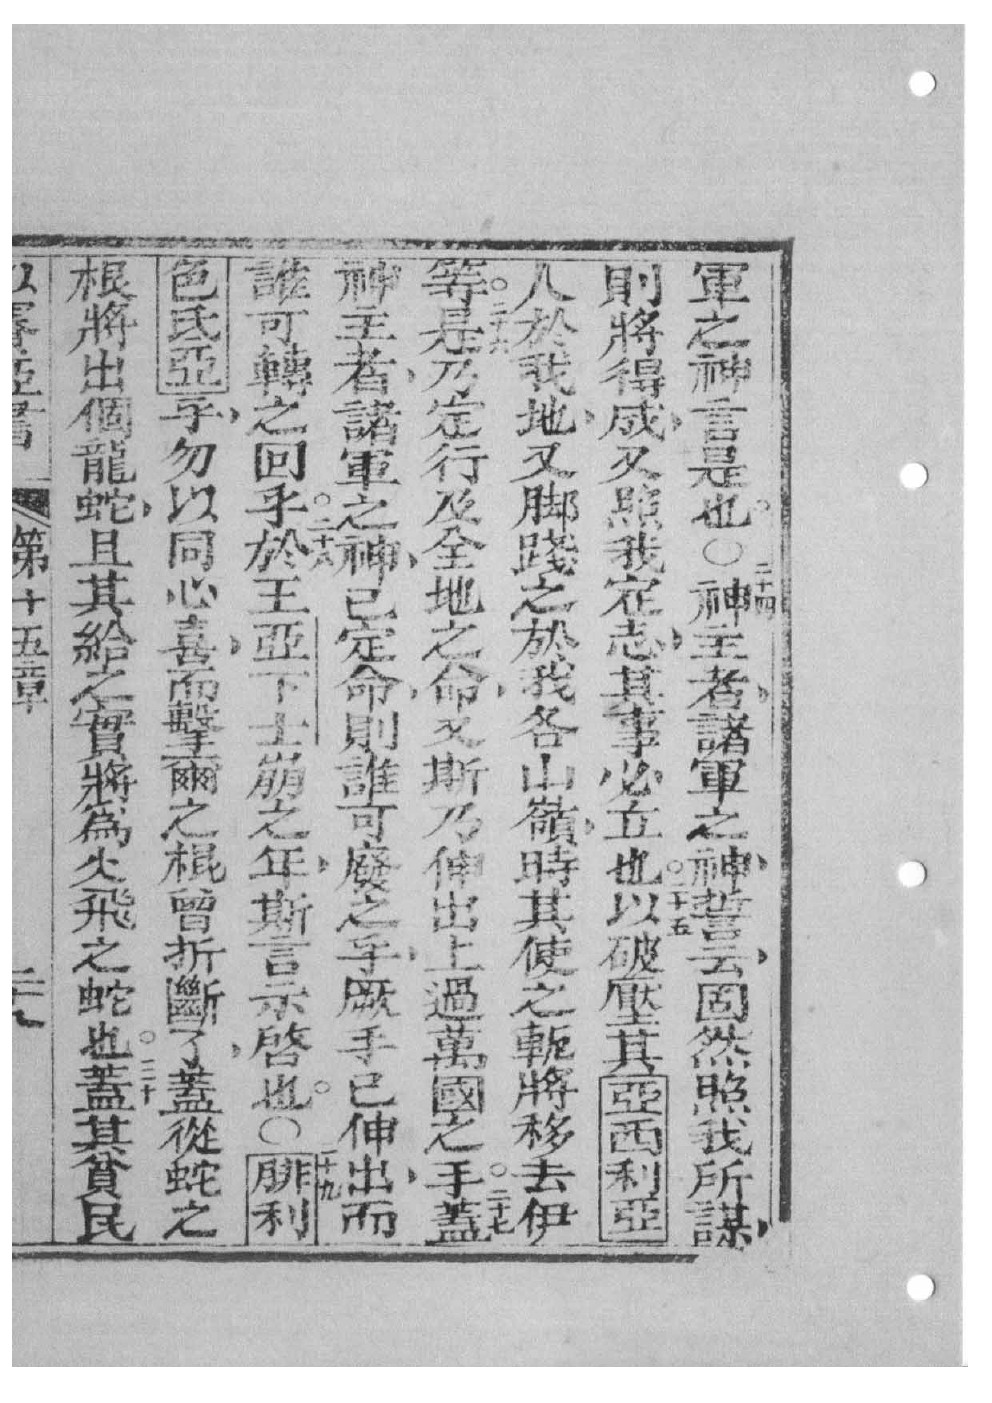 軍之神言是也。○二十四神主者諸軍之神誓云固然照我所謀
則將得成又照我定志其事必立也。二十五以破壓其亞西利亞
人於我地又脚踐之於我各山嶺時其使之軛將移去伊
等。二十六是乃定行及全地之命又斯乃伸出上過萬國之手。二十七蓋
神主者諸軍之神已定命則誰可廢之乎厥手已伸出而
誰可轉之回乎。二十八於王亞下士崩之年斯言示啓也。○二十九腓利
色氐亞乎勿以同心喜而擊爾之棍曾折斷了蓋從蛇之
根將出個龍蛇且其給之實將為火飛之蛇也。三十蓋其貧民
以賽亞書 第十五章 二十九